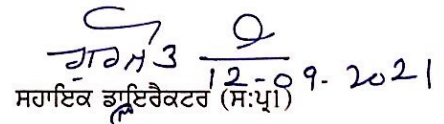 12-09-2021
ਸਹਾਇਕ ਡਾਇਰੈਕਟਰ (ਸ:ਪ੍ਰਾ)